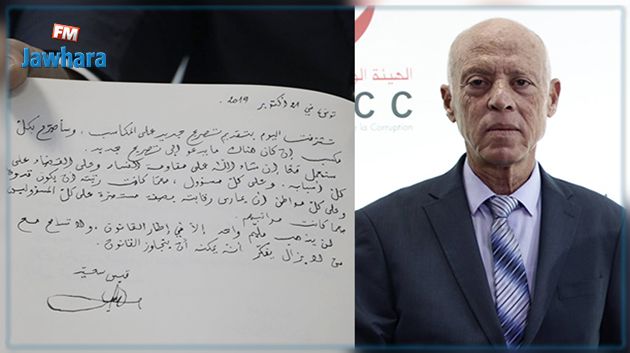 FM
Jawhara
تونس في 21 أكتوبر 2019.
تشرفت اليوم بتقديم تصريح جديد على المكاسب، وسأصرح بكلّ
مكسب إن كان هناك ما يدعو إلى تصريح جديد.
سنعمل معًا إن شاء الله على مقاومة الفساد وعلى القضاء على
كلّ أسبابه. وعلى كلّ مسؤول، مهما كانت رتبته أن يكون قدوة
وعلى كلّ مواطن أن يمارس رقابته بصفة مستمرة على كلّ المسؤولين
مهما كانت مراتبهم.
لن يذهب مليم واحد إلاّ في إطار القانون. ولا تسامح مع
من لا يزال يفكر أنه يمكنه أن يتجاوز القانون.
قيس سعيد
الهيئة
CC
la Corruption